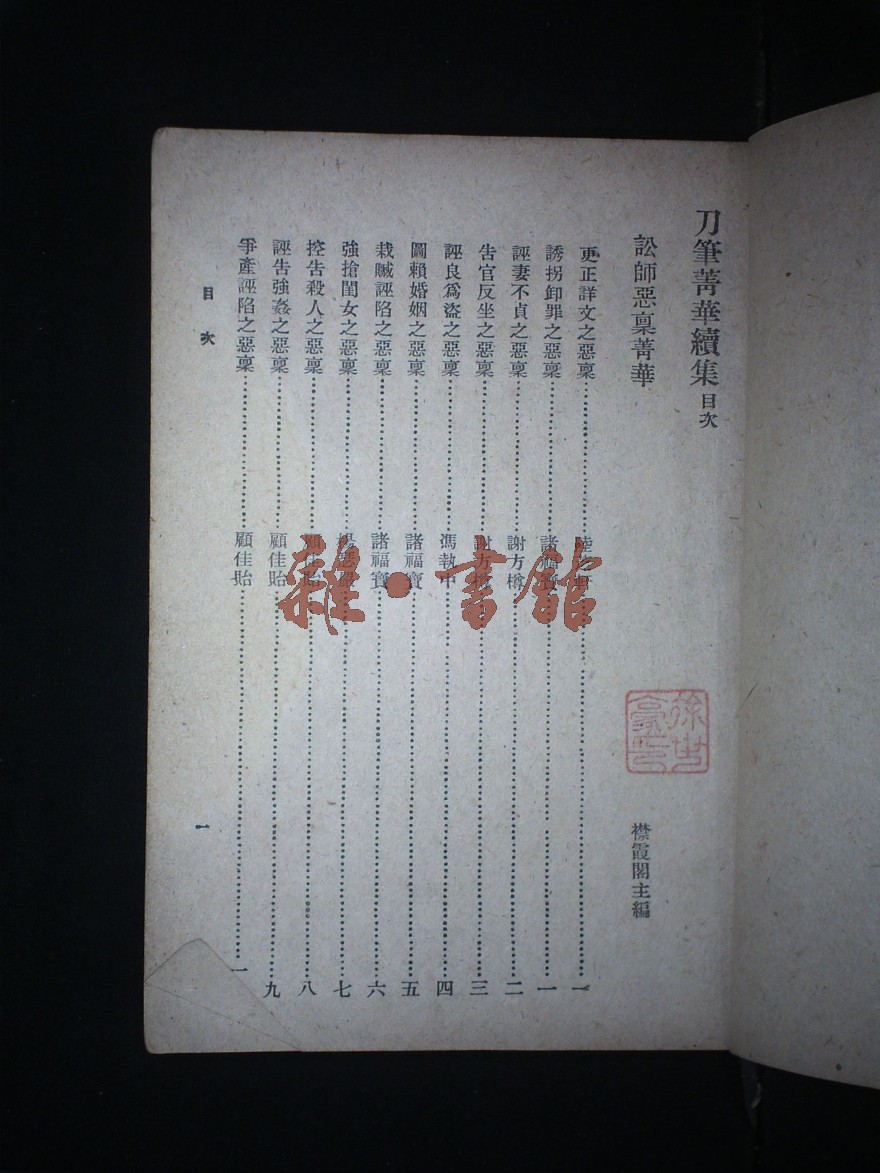 刀筆菁華續集目次
訟師惡稟菁華
襟霞閣主編
更正詳文之惡稟
一
誘拐卸罪之惡稟
諸福寶
一
誣妻不貞之惡稟
謝方樽
二
告官反坐之惡稟
謝方樽
三
誣良爲盜之惡稟
馮執中
四
圖賴婚姻之惡稟
諸福寶
五
栽贓誣陷之惡稟
諸福寶
六
強搶閨女之惡稟
七
控告殺人之惡稟
顧佳貽
八
誣告強姦之惡稟
顧佳貽
九
爭產誣陷之惡稟
顧佳貽
目次
一
雜·書館